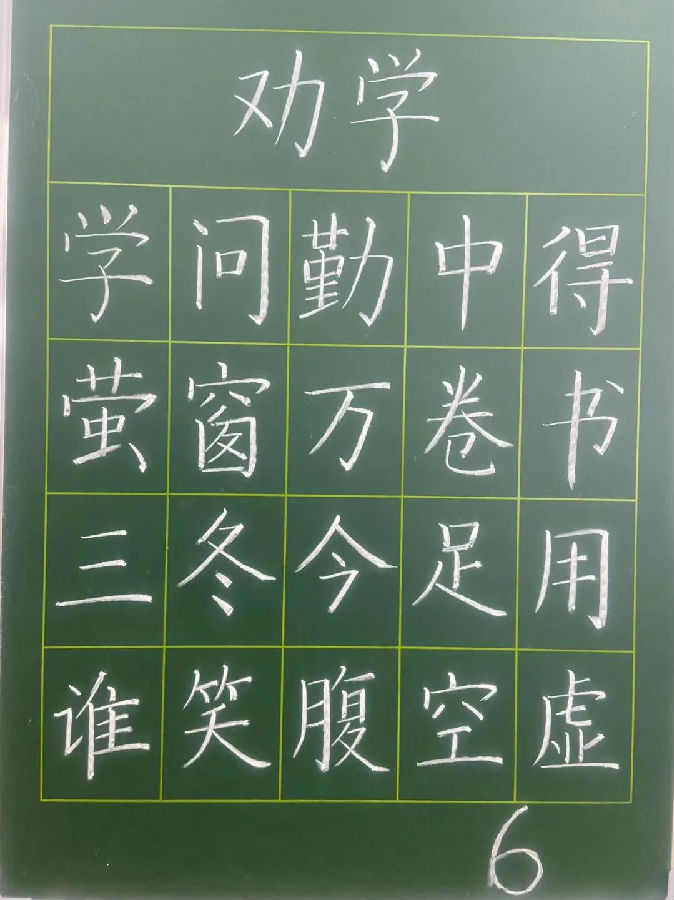 劝学
学问勤中得
萤窗万卷书
三冬今足用
谁笑腹空虚
6